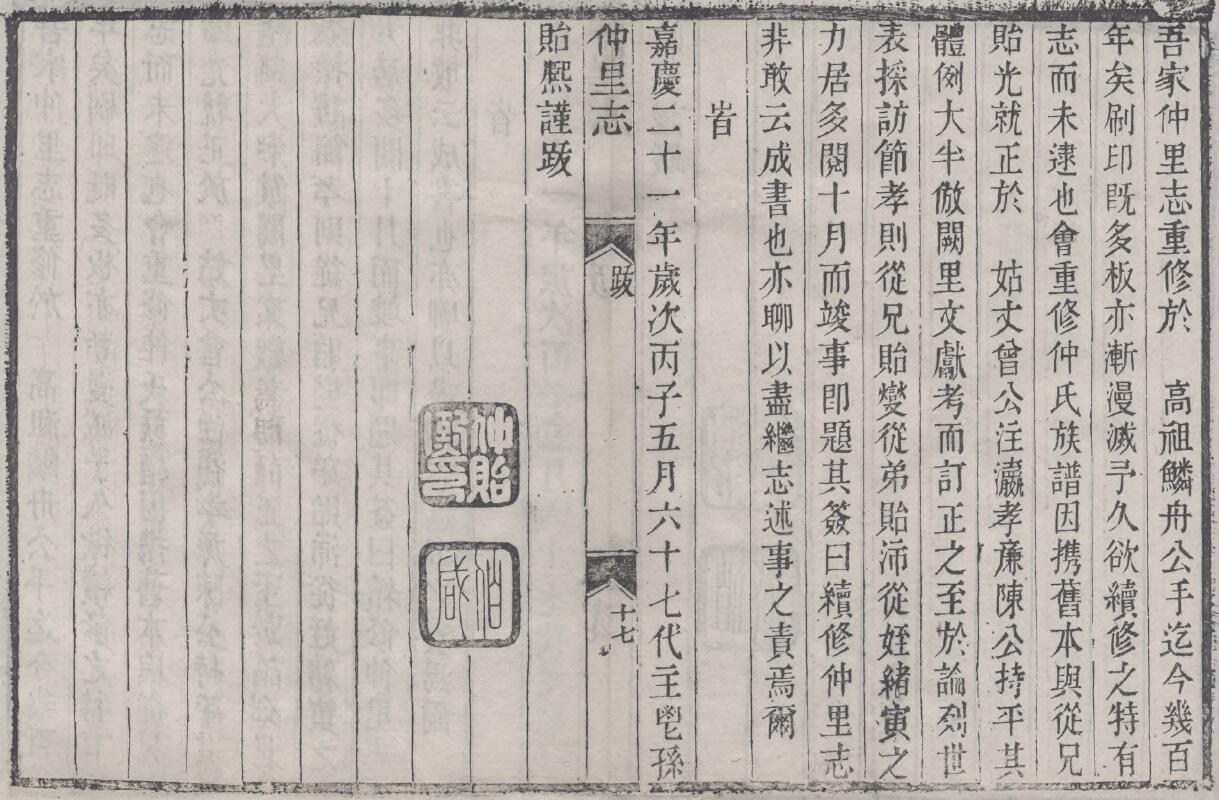 吾家仲里志重修於　高祖鱗舟公手迄今幾百
年矣刷印既多板亦漸漫滅予久欲續修之特有
志而未逮也會重修仲氏族譜因携舊本與從兄
貽光就正於　姑丈曾公注瀛孝廉陳公持平其
體例大半倣闕里文獻考而訂正之至於論列世
表採訪節孝則從兄貽燮從弟貽沛從姪緒寅之
力居多閱十月而竣事即題其簽曰續修仲里志
非敢云成書也亦聊以盡繼志述事之責焉爾
旹
嘉慶二十一年歲次丙子五月六十七代主鬯孫
仲里志　跋　十七
貽熙謹跋
仲貽熙印
伯咸